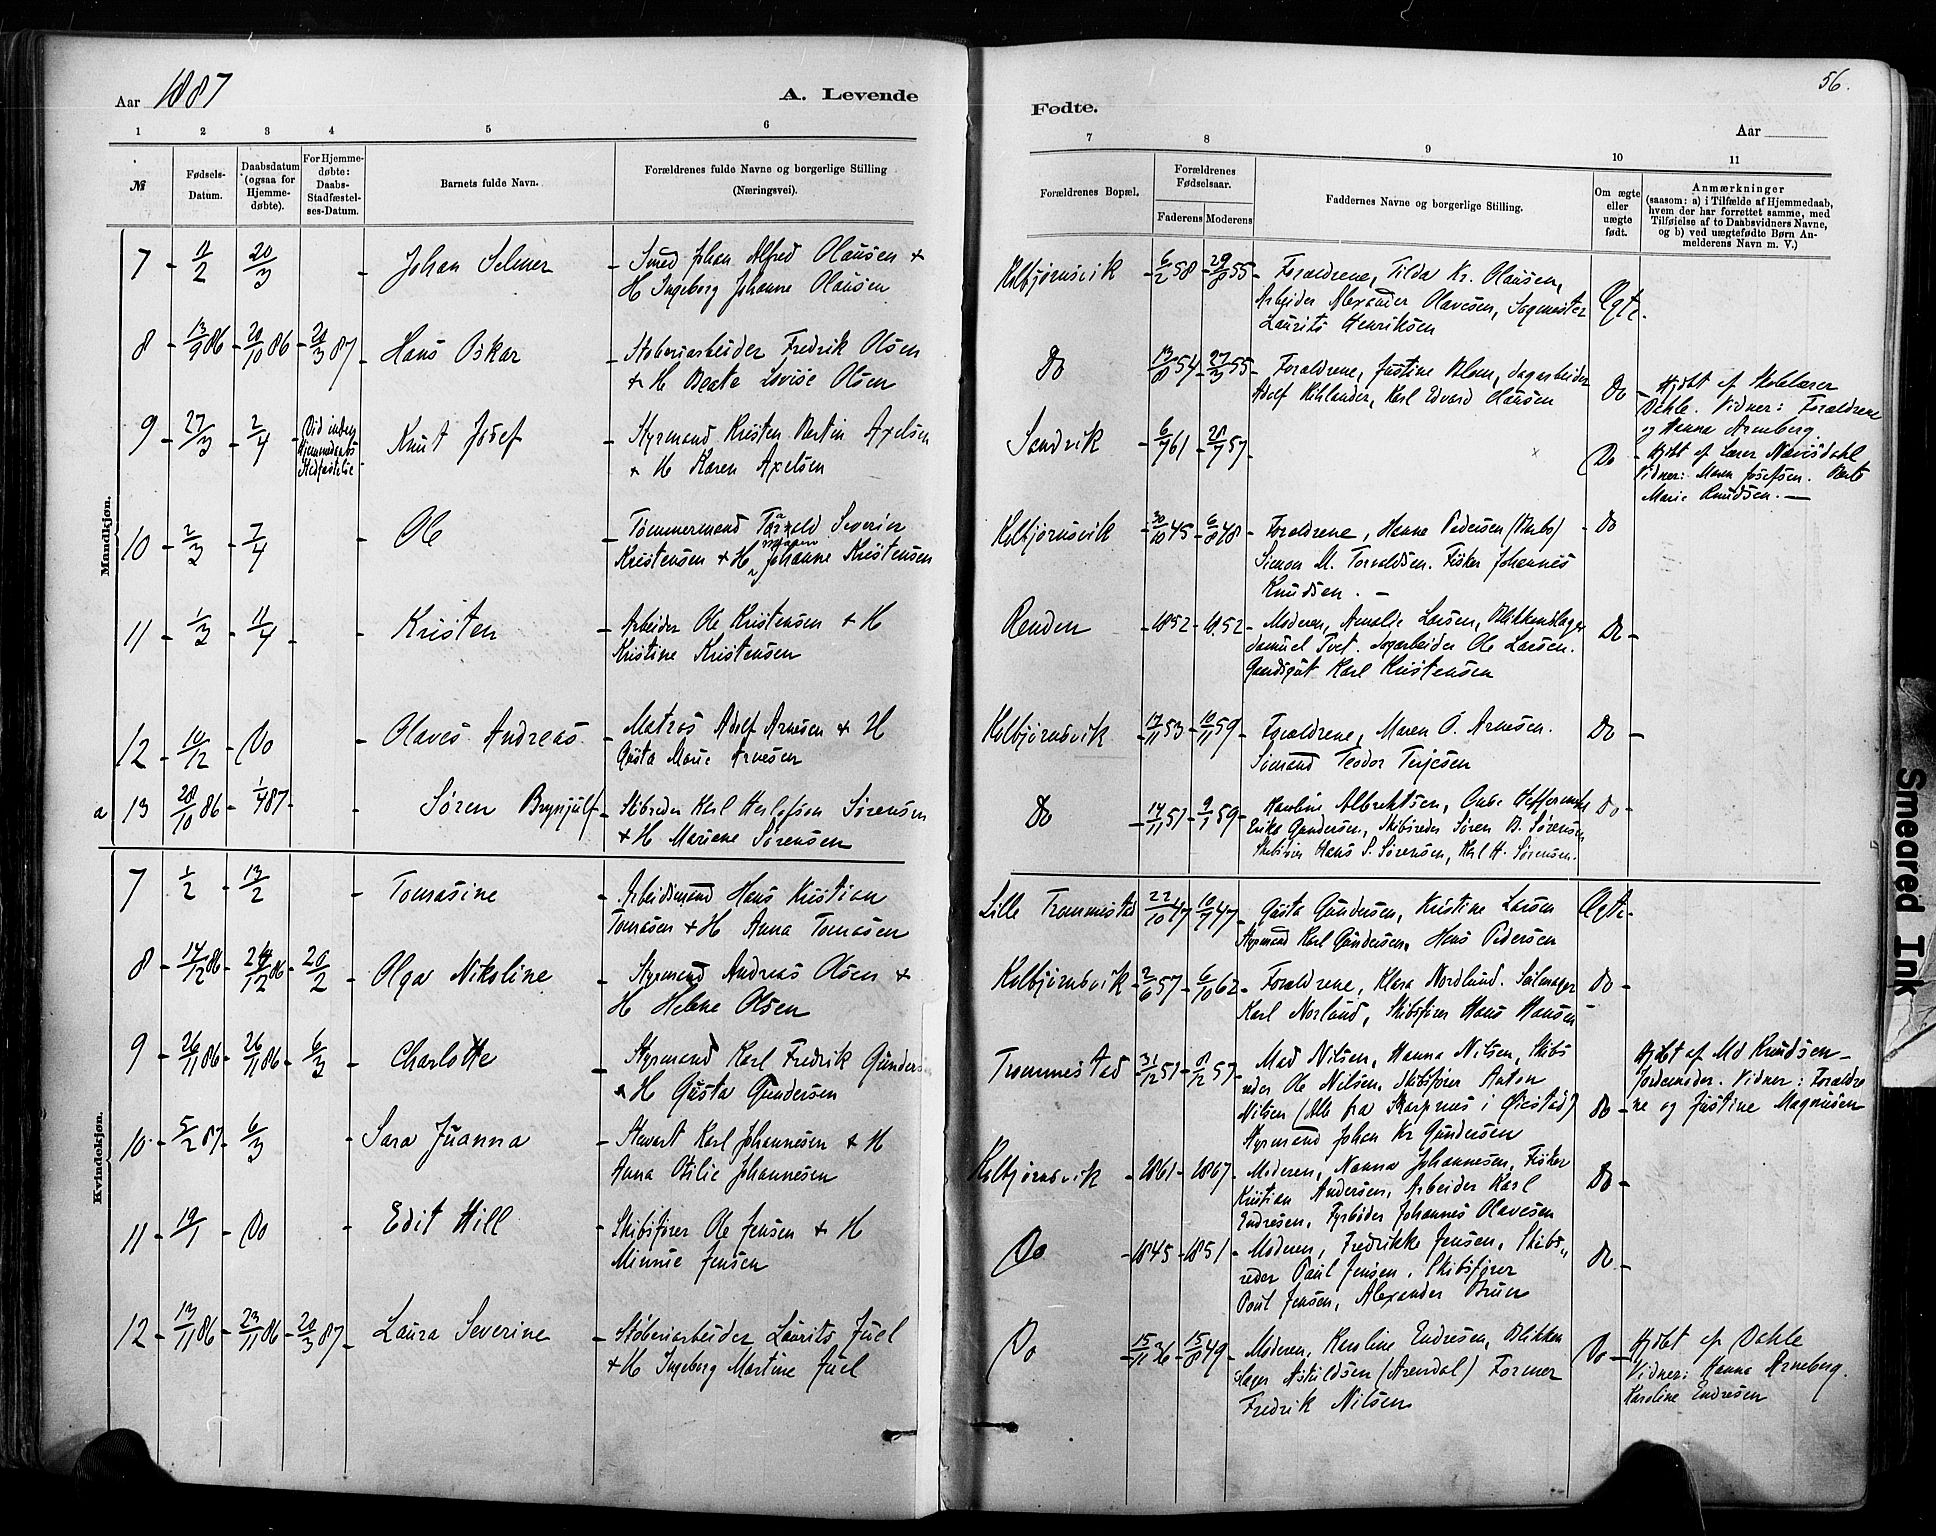 Aar 1887
A. Levende
Fødte.
56.
Aar
1 2 3 4 5 6 7 8 9 10 11
№
Fødsels-
Datum.
Daabsdatum
(ogsaa for
Hjemme-
døbte).
For Hjemme-
døbte:
Daabs-
Stadfæstel-
ses-Datum.
Barnets fulde Navn.
Forældrenes fulde Navne og borgerlige Stilling
(Næringsvei).
Forældrenes Bopæl.
Forældrenes
Fødselsaar.
Faderens Moderens
Faddernes Navne og borgerlige Stilling.
Om ægte
eller
uægte
født.
Anmærkninger
(saasom: a) i Tilfælde af Hjemmedaab,
hvem der har forrettet samme, med
Tilføielse af to Daabsvidners Navne,
og b) ved uægtefødte Børn An-
melderens Navn m. V.)
Mandkjøn.
7 - 11/2 20/3 - Johan Selmer - Smed Johan Alfred Olausen +
H Ingeborg Johanne Olausen
Kolbjørnsvik 6/2 58 - 29/8 55 - Forældrene, Tilda Kr. Olausen,
Arbeider Alexander Olavesen, Sagmester
Laurits Henriksen
Ægte.
8 - 13/9 86 - 20/10 86 - 20/3 87 - Hans Oskar - Støberiarbeider Fredrik Olsen
+ H Beate Lovise Olsen
Do 13/8 54 - 27/3 55 - Forældrene, Justine Olsen, Sagarbeider
Adolf Kihlander, Karl Edvard Olausen
Do - Hjdbt af Skolelærer
Dahle. Vidner: Forældrene
og Hanna Arneberg
9 - 27/3 - 2/4 - Knut Josef - Styrmand Kristen Martin Axelsen
+ H Karen Axelsen
Sandvik 6/7 61 - 20/7 57 -
Do - Hjdbt af Lærer Nævisdahl
Vidner: Maren Josefsen. Berte
Marie Knudsen. -
10 - 2/3 - 7/4 - Ole - Tømmermand Torvald Severin
Kristensen + H Johanne Kristensen
Kolbjørnsvik - 30/10 45 - 6/8 48 - Forældrene, Hanne Pedersen
Simon M. Torvaldsen. Fisker Johannes
Knudsen. -
Do
11 - 1/3 - 11/4 - Kristen - Arbeider Ole Kristensen + H
Kristine Kristensen
Renden - 1852 - 1852 - Moderen, Amalie Larsen, Blikkenslager
Samuel Tvet. Sagarbeider Ole Larsen.
Gaardsgut Karl Kristensen
Do -
12 - 10/12 - Do - Olaves Andreas - Matros Adolf Arnesen + H
Gusta Marie Arnesen
Kolbjørnsvik - 17/11 53 - 10/11 59 - Forældrene, Maren O. Arnesen.
Sømand Teodor Terjesen
Do -
a 13 - 28/10 86 - 1/4 87 - Søren Brynjulf - Skibsreder Karl Herlofson Sørensen
+ H Mariene Sørensen
Do - 14/11 51 - 9/1 59 - Karoline Albrektsen,
Erika Gundersen, Skibsreder Søren B. Sørensen
Skibsfører Hans S. Sørensen, Karl H. Sørensen.
Do -
Kvindekjøn.
7 1/2 - 13/2 - Tomasine - Arbeidsmand Hans Kristian
Tomasen + H Anna Tomasen
Lille Trommestad 22/10 47 - 10/7 47 - Gusta Gundersen, Kristine Larsen
Styrmand Karl Gundersen, Hans Pedersen
Ægte -
8 - 14/12 86 - 26/12 86 - 20/2 - Olga Nikoline - Styrmand Andreas Olsen +
H Helene Olsen
Kolbjørnsvik - 2/6 57 - 6/10 62 - Forældrene, Klara Nordlund. Seilmager
Karl Norlund, Skibsfører Hans Hansen -
Do -
9 - 26/11 86 - 26/11 86 - 6/3 - Charlotte - Styrmand Karl Fredrik Gundersen
+ H Gusta Gundersen
Trommestad - 31/12 51 - 8/12 57 - Mad Nilsen, Hanna Nilsen, Skibs
reder Ole Nilsen, Skibsfører Anton
Nilsen (Alle fra Skarpnes i Øiestad)
Styrmand Johan Kr Gundersen
Do - Hjdbt af Md Knudsen -
Jordemoder. Vidner: Forældre
ne og Justine Magnusen
10 - 5/2 87 - 6/3 - Sara Juanna - Stewart Karl Johannesen + H
Anna Otilie Johannesen
Kolbjørnsvik - 1861 - 1867 - Moderen, Nanna Johannesen, Fisker
Kristian Andersen, Arbeider Karl
Endresen, Fyrbøder Johannes Olavesen
Do -
11 - 19/1 - Do - Edit Hill - Skibsfører Ole Jensen + H
Minnie Jensen
Do - 1845 - 1851 - Moderen, Fredrikke Jensen, Skibs„
reder Paul Jensen, Skibsfører
Poul Jensen, Alexander Bruun
Do -
12 - 13/11 86 - 23/11 86 - 20/3 87 - Laura Severine - Støberiarbeider Laurits Juel
+ H Ingeborg Martine Juel
Do - 15/11 36 - 15/8 49 - Moderen, Karoline Endresen, Blikken
slager Askildsen (Arendal) Former
Fredrik Nilsen
Do - Hjdbt af Dahle
Vidner: Hanna Arneberg.
Karoline Endresen
Smeared Ink